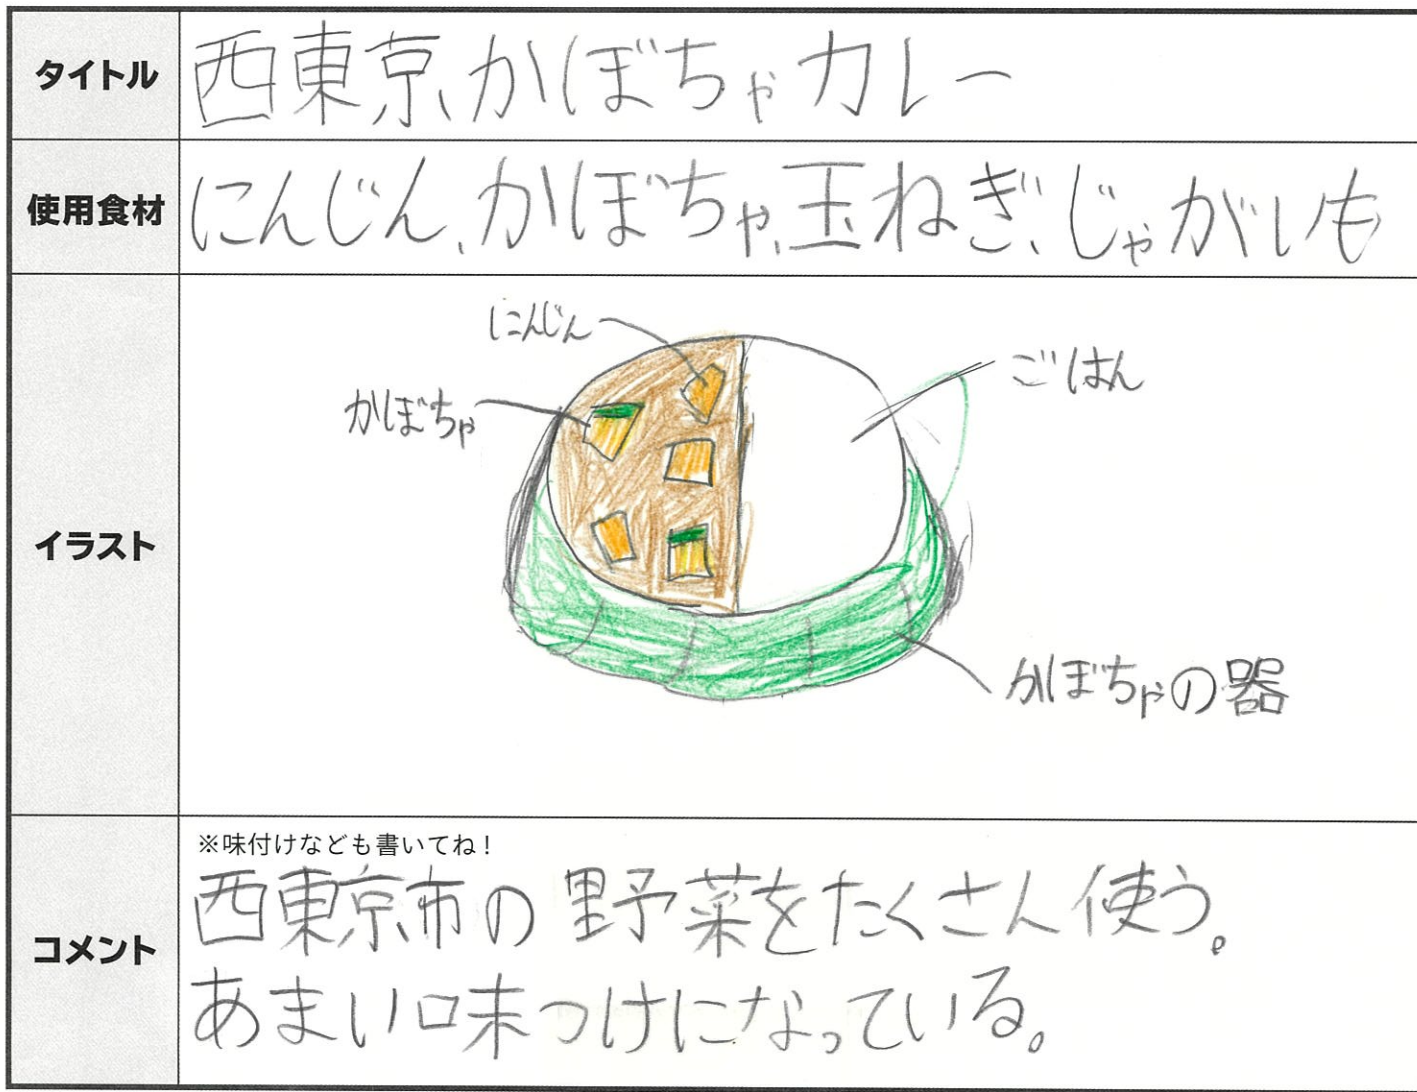 タイトル
西東京かぼちゃカレー
使用食材
にんじん、かぼちゃ、玉ねぎ、じゃがいも
イラスト
にんじん
かぼちゃ
ごはん
かぼちゃの器
コメント
※味付けなども書いてね！
西東京市の野菜をたくさん使う。
あまい味つけになっている。